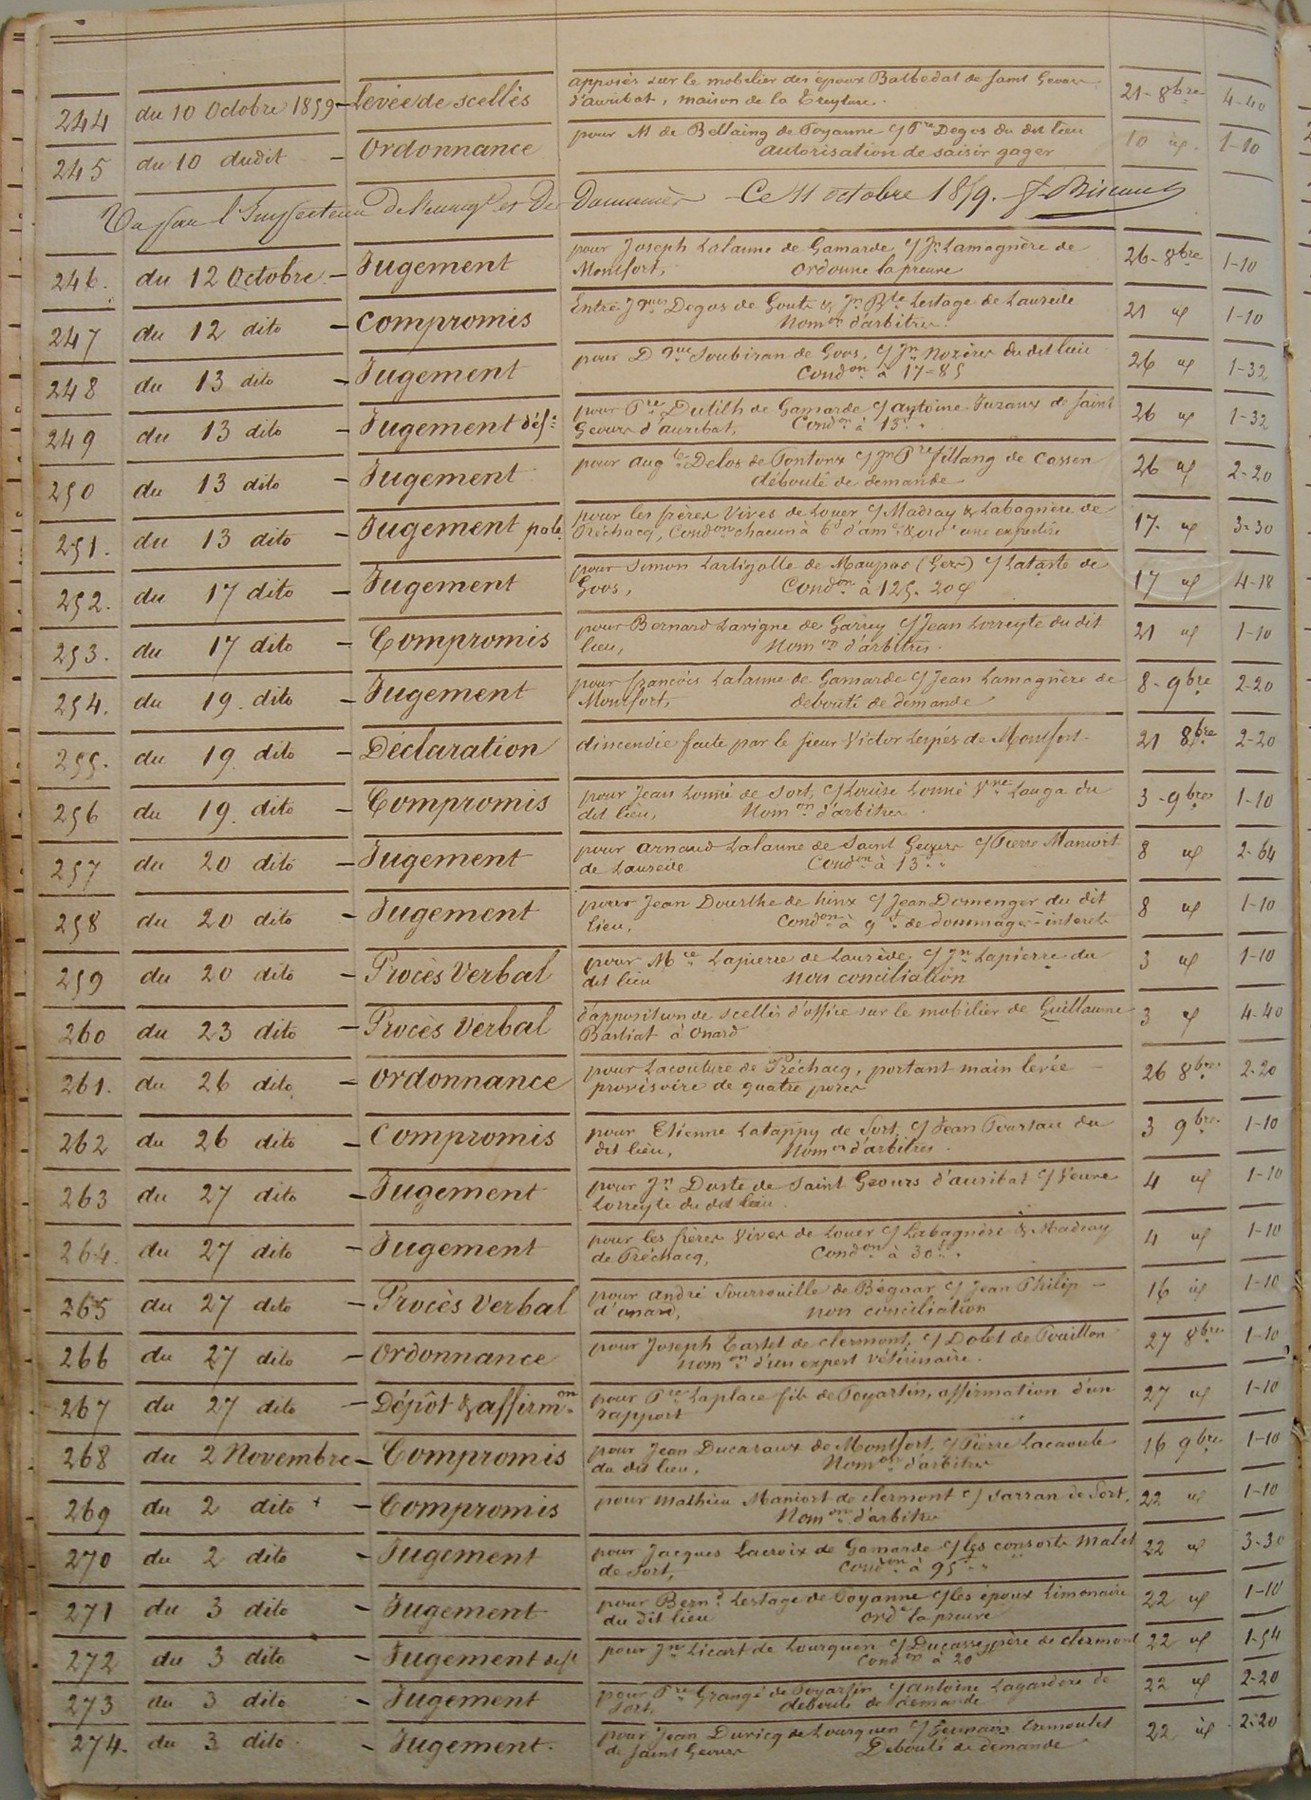 244 du 10 Octobre 1859 - Levée de scellés apposés sur le mobilier des époux Balbedat de Saint Geours 21 - 8bre 4-40
d'auribat, maison de la
245 du 10 dudit - Ordonnance pour M de Bellaing de Poyanne c/ Pre Degos du dit lieu 10 id. 1-10
autorisation de saisir gager
Vu par l'Inspecteur de l'enregt et Des Domaines Ce 11 octobre 1859.
246. du 12 Octobre. - Jugement pour Joseph Lalanne de Gamarde c/ Jn Lamagnère de 26 - 8bre 1-10
Montfort, ordonne la preuve
247 du 12 dito - Compromis Entre Jques Degos de Gouts & Jn Bte Lestage de Laurède 21 id 1-10
Nomon d'arbitres.
248 du 13 dito - Jugement pour Dque Soubiran de Goos, c/ Jn Nozères du dit lieu 26 id 1-32
Condon à 17-85
249 du 13 dito - Jugement déft pour Pre Dutilh de Gamarde c/ antoine Juzaux de Saint 26 id 1-32
Geours d'auribat, Condon à 13f "
250 du 13 dito - Jugement pour Augte Delos de Pontonx c/ Jn Pre fillang de Cassen 26 id 2-20
débouté de demande
251. du 13 dito - Jugement pole pour les frères Vives de Louer c/ Madray & Labagnère de 17. id 3-30
Préchacq, Condon chacun à 6f d'amde & ord' une expertise
252. du 17 dito - Jugement pour Simon Lartigolle de Maupas (Gers) c/ Lataste de 17 id 4-18
Goos, Condon à 125. 20c
253. du 17 dito - Compromis pour Bernard Lavigne de Garrey c/ Jean Lorreyte du dit 21 id 1-10
lieu, Nomon d'arbitres.
254. du 19. dito - Jugement pour françois Lalanne de Gamarde c/ Jean Lamagnère de 8 - 9bre 2-20
Montfort, debouté de demande
255. du 19 dito - Déclaration d'incendie faite par le sieur Victor Lespés de Montfort. 21 8bre 2-20
256 du 19. dito - Compromis pour Jean Lonné de Sort, c/ Louise Lonné Vve Lauga du 3 - 9bre 1-10
dit lieu, Nomon d'arbitres
257 du 20 dito - Jugement pour arnaud Lalanne de Saint Geours c/ Pierre Maniort 8 id 2-64
de Laurède Condon à 13 "
258 du 20 dito - Jugement pour Jean Dourthe de hinx c/ Jean Domenger du dit 8 id 1-10
lieu, Condon à 9f de dommages-interets
259 du 20 dito - Procès Verbal pour Mce Lapierre de Laurède, c/ Jn Lapierre du 3 id 1-10
dit lieu non conciliation
260 du 23 dito - Procès Verbal d'apposition de scellés d'office sur le mobilier de Guillaume 3 id 4-40
Bastiat à Onard
261. du 26 dito - Ordonnance pour Lacouture de Préchacq, portant main levée 26 8bre 2-20
provisoire de quatre porcs
262 du 26 dito - Compromis pour Etienne Latappy de Sort, c/ Jean Poursau du 3 9bre 1-10
dit lieu, Nomon d'arbitres.
263 du 27 dito - Jugement pour Jn Duste de Saint Geours d'auribat c/ Veuve 4 id 1-10
Lorreyte du dit lieu.
264. du 27 dito - Jugement pour les frères Vives de Louer c/ Labagnère & Madray 4 id 1-10
de Préchacq, Condon à 30f "
265 du 27 dito - Procès Verbal pour andré Sourrouille de Bégaar c/ Jean Philip 16 id 1-10
d'onard, non conciliation
266 du 27 dito - Ordonnance pour Joseph Tastet de clermont, c/ Dolet de Pouillon 27 8bre 1-10
nomon d'un expert vétérinaire.
267 du 27 dito - Dépôt & affirmon pour Pre Laplace fils de Poyartin, affirmation d'un 27 id 1-10
rapport
268 du 2 Novembre - Compromis pour Jean Ducaraux de Montfort, c/ Pierre Lacaoule 16 9bre 1-10
du dit lieu, Nomon d'arbitres
269 du 2 dito - Compromis pour Mathieu Maniort de clermont c/ Sarran de Sort, 22 id 1-10
Nomon d'arbitres
270 du 2 dito - Jugement pour Jacques Lacroix de Gamarde c/ les consorts Malet 22 id 3-30
de Sort, Condon à 95f "
271 du 3 dito - Jugement pour Bernd Lestage de Poyanne c/ les époux Limonaire 22 id 1-10
du dit lieu ord' la preuve
272 du 3 dito - Jugement deft pour Jn Licart de Lourquen c/ Ducasse, père de clermont 22 id 1-54
Condon à 20
273 du 3 dito - Jugement pour Pre Grangé de Poyartin c/ antoine Lagardere de 22 id 2-20
Sort, debouté de demande
274. du 3 dito. - Jugement. pour Jean Duricq de Lourquen c/ Germain 22 id 2-20
de Saint Geours Debouté de demande